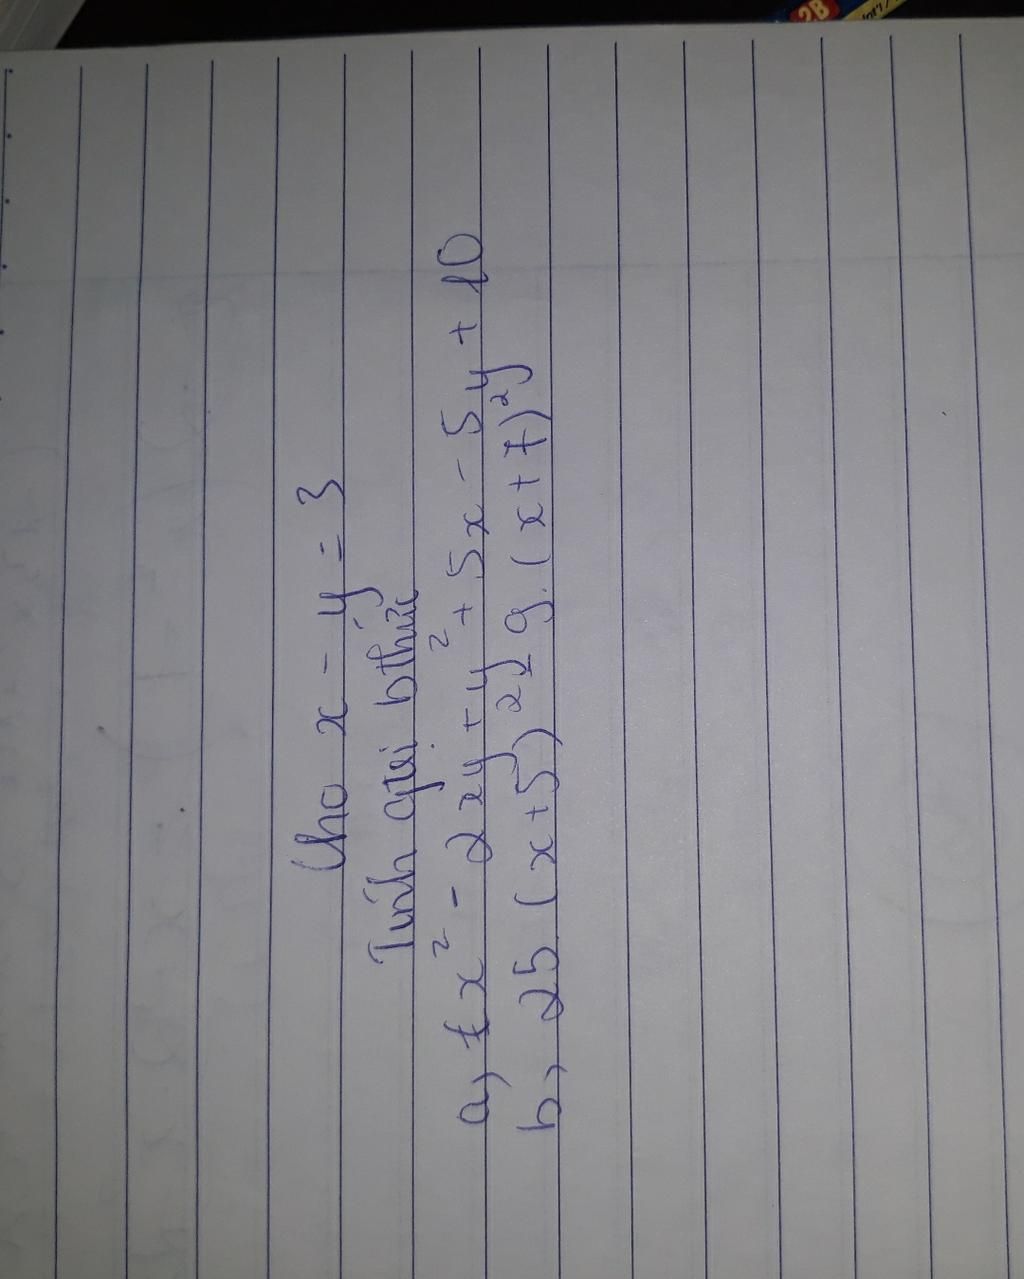 Cho x - y = 3
Tính giá bthức
a, x² - 2xy + y² + 5x - 5y + 10
b, 25.(x+5)² 9.(x+7)²
2B